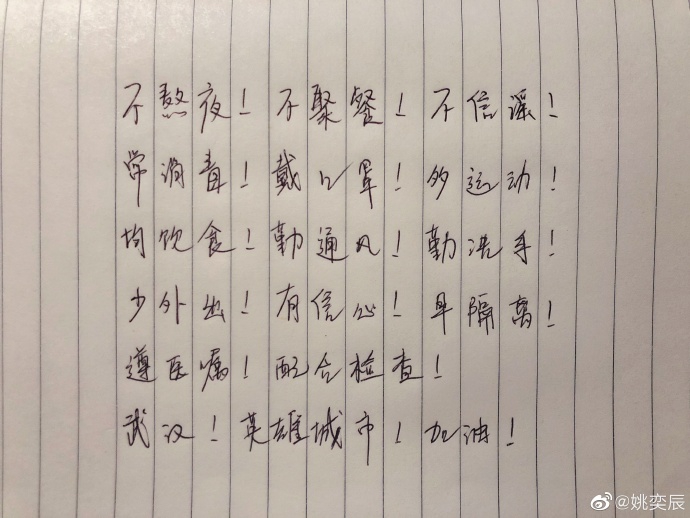 不熬夜！不聚餐！不信谣！
常消毒！戴口罩！多运动！
均饮食！勤通风！勤洗手！
少外出！有信心！早隔离！
遵医嘱！配合检查！
武汉！英雄城市！加油！
@姚奕辰